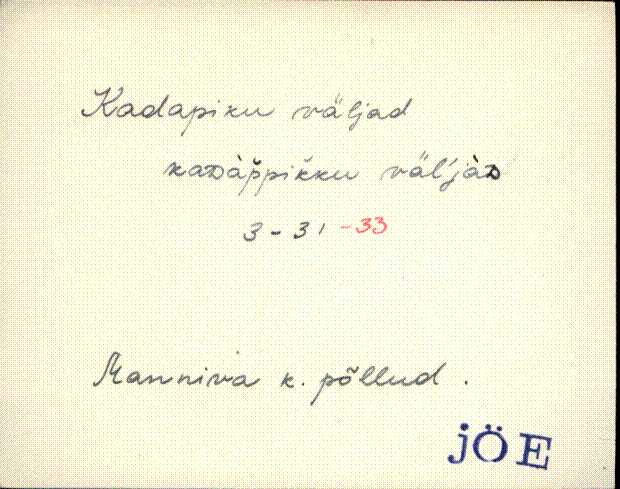 Kadapiku väljad
kaᴅàp̆pik̆ku väl'jàᴅ
3-31-33
Manniva k. põllud.
JÖE